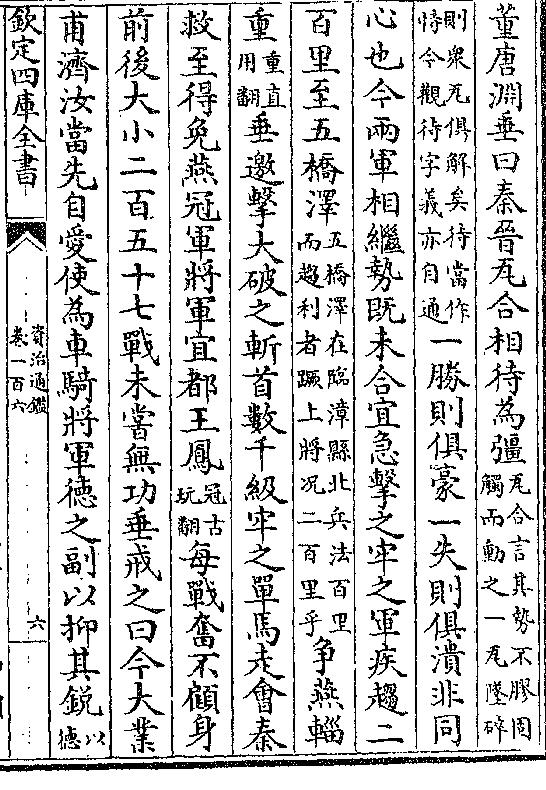 董唐淵垂曰秦晉瓦合相待為彊瓦合言其勢不膠固觸而動之一瓦墜碎
則衆瓦俱解矣待當作恃今觀待字義亦自通一勝則俱豪一失則俱潰非同
心也今兩軍相繼勢既未合宜急擊之牢之軍疾趨二
百里至五橋澤五橋澤在臨漳縣北兵法百里而趨利者蹶上將况二百里乎爭燕輜
重重直用翻垂邀擊大破之斬首數千級牢之單馬走會秦
救至得免燕冠軍將軍宜都王鳳冠古玩翻每戰奮不顧身
前後大小二百五十七戰未嘗無功垂戒之曰今大業
甫濟汝當先自愛使為車騎將軍德之副以抑其銳以德
欽定四庫全書
資治通鑑
卷一百六
六